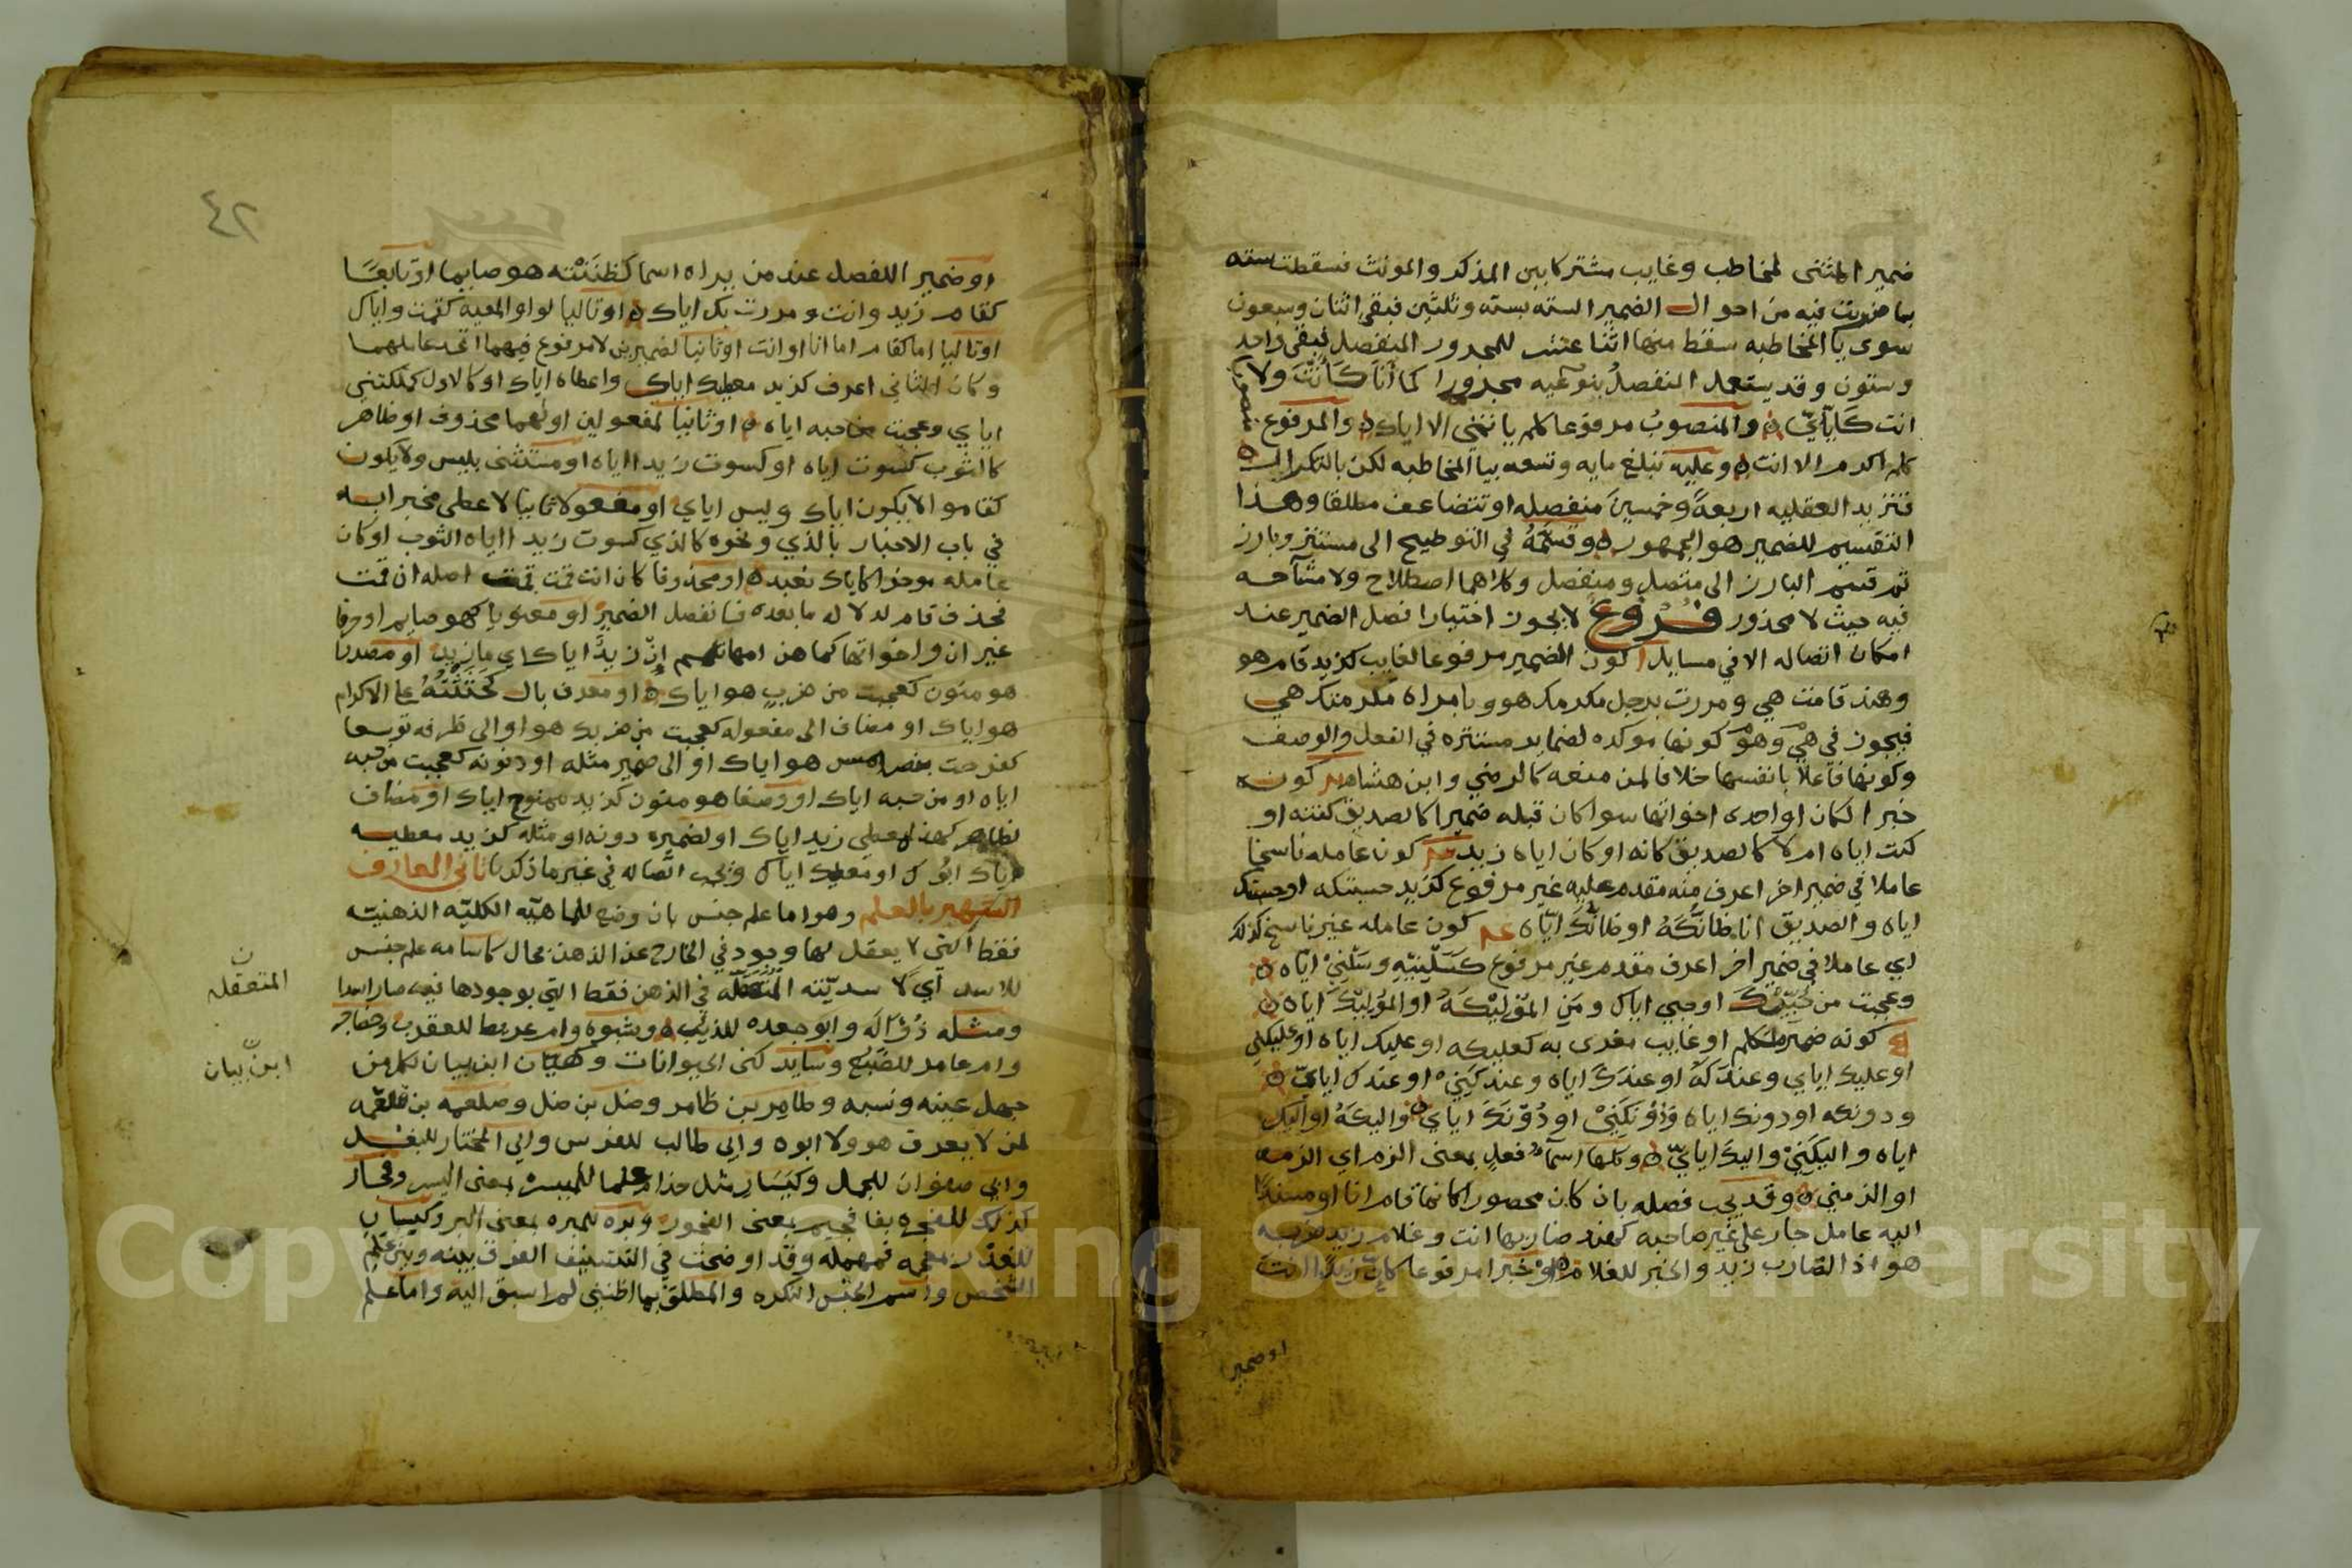 ضمير المثنى لمخاطب وغايب مشتركا بين المذكر والمونث فسقطت سته
بما ضربت فيه من احوال الضمير السته بسته وثلثين فبقي اثنان وسبعون
سوى يا المخاطبه سقط منها اثنا عشر للمجرور المنفصل فبقي واحد
وستون وقد يستعمل المنفصل بنوعيه مجرورا كما أنا كَأَنْتَ ولا
انت كَإِيّايَ والمنصوب مرفوعا كلم يا نتني الا اياك والمرفوع
كلم اكرم الا انت وعليه تبلغ مايه وتسعه بيا المخاطبه لكن بالتكرار
فتزيد العقليه اربعةً وخمسين منفصله او تتضاعف مطلقا وهذا
التقسيم للضمير هو الجمهور وقسّمَهُ في التوضيح الى مستتر وبارز
ثم قسم البارز الى متصل ومنفصل وكلاهما اصطلاح ولا مشآحه
فيه حيث لا محذور فروع لا يجوز اختيارا فصل الضمير عند
امكان اتصاله الا في مسايل ا كون الضمير مرفوعا لغايب كزيد قام هو
وهند قامت هي ومررت برجل مكرمك هو وبامراه مكرمتك هي
فيجوز في هي وهو كونها موكده لضماير مستتره في الفعل والوصف
وكونها فاعلا بانفسها خلافا لمن منعه كالرضي وابن هشام كونه
خبرا لكان او احدى اخواتها سوا كان قبله ضميرا كالصديق كنته او
كنت اياه ام لا كالصديق كانه او كان اياه زيد كون عامله ناسخا
عاملا في ضمير اخر اعرف منه مقدم عليه غير مرفوع كزيد حسبتكه او حسبتك
اياه والصديق انا ظانّكَهُ او ظانّكَ ايّاه كون عامله غير ناسخ كذلك
اي عاملا في ضمير اخر اعرف مقدم غير مرفوع كَسَلْنِيْهِ وسَلْنِيْ ايّاه
وعجبت من حُبِّيْكَ او حبي اياك ومن المُوْلِيْكَهُ او المُوْلِيْكَ اياه
كونه ضمير متكلم او غايب مغرى به كعليكه او عليك اياه او عليكني
او عليك اياي وعندكَهُ او عندكَ اياه وعندكَنِيْ او عندك اياي
ودونكه او دونك اياه ودُوْنَكَنِيْ او دُوْنَكَ اياي واليكَهُ او اليك
اياه واليكَنِيْ واليكَ اياي وكلها اسماء فعل بمعنى الزم اي الزمه
او الزمني وقد يجب فصله بان كان محصورا كانما قام انا او مسندا
اليه عامل جار على غير صاحبه كهند ضاربها انت وغلام زيد ضاربه
هو اذ الضارب زيد والخبر للغلام او خبرا مرفوعا كان زيدا انت
او ضمير
٤٢
او ضمير الفصل عند من يراه اسما كظننته هو صايما او تابعا
كقام زيد وانت ومررت بك اياك او تاليا لواو المعيه كقمت واياك
او تاليا اما كقام اما انا او انت او ثانيا لضميرين لا مرفوع فيهما اتحد عاملهما
وكان الثاني اعرف كزيد معطيك اياك واعطاه اياك او كالاول كملكتني
اياي وعجبت من حبه اياه او ثانيا لمفعولين اولهما محذوف او ظاهر
كالثوب كسوت اياه او كسوت زيدا اياه او مستثنى بليس ولا يكون
كقاموا لا يكون اياك وليس اياي او مفعولا ثانيا لاعطى مخبرا به
في باب الاخبار بالذي ونحوه كالذي كسوت زيدا اياه الثوب او كان
عامله موخرا كاياك نعبد او محذوفا كان انت قمت قمت اصله ان قمت
فحذف قام لدلاله ما بعده فانفصل الضمير او معنويا كهو صايم او حرفا
غير ان واخواتها كما هن امهاتهم إنْ زيدٌ اياك اي ما زيد او مصدرا
هو منون كعجبت من ضربٍ هو اياك او معرف بال كحثثته على الاكرام
هو اياك او مضاف الى مفعوله كعجبت من ضربك هو او الى ظرفه توسعا
كفرحت بنصر امس هو اياك او الى ضمير مثله او دونه كعجبت من حبه
اياه او من حبه اياك او وصفا هو منون كزيد ممنوح اياك او مضاف
لظاهر كهذا معطي زيد اياك او لضميره دونه او مثله كزيد معطيه
اياك ابوك او معطيك اياك ويجب اتصاله في غير ما ذكرنا ثاني المعارف
الشهير بالعلم وهو اما علم جنس بان وضع للماهيّه الكليّه الذهنيّه
فقط التي لا يعقل لها وجود في الخارج عن الذهن بحال كاسامه علم جنس
للاسد اي لا سديّته المتعقله في الذهن فقط التي بوجودها فيه صار اسدا
ومثله ذُؤَاله وابو جعده للذيب وشبوه وام عريط للعقرب وحضاجر
وام عامر للضبع وساير كنى الحيوانات وهيّان ابن بيان لكل من
جهل عينه ونسبه وطامر بن طامر وضل بن ضل وصلعمه بن قلعمه
لمن لا يعرف هو ولا ابوه وابي طالب للفرس وابي المختار للبغل
وابي صفوان للجمل وكيَسَارِ مثل حذام علما للميسره بمعنى اليسر وفجار
كذلك للفجره بفا فجيم بمعنى الفجور وبره للمبره بمعنى البر وكيسان
للغدر بمعجمه فمهمله وقد اوضحت في التصنيف الفرق بينه وبين علم
الشخص واسم الجنس النكره والمطلق بما اظنني لم اسبق اليه واما علم
المتعقله
ابن بيان